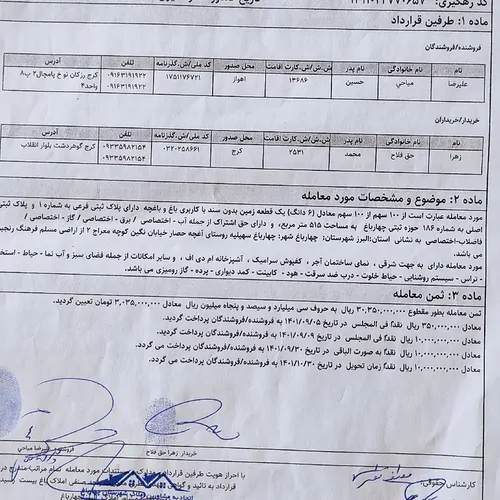 کد رهگیری:
ماده ۱: طرفین قرارداد
فروشنده/فروشندگان
نام نام خانوادگی نام پدر ش.ش/ش.کارت اقامت محل صدور کد ملی/ش.گذرنامه تلفن آدرس
علیرضا میاحی حسین ۱۳۶۸۶ اهواز ۱۷۵۱۱۷۶۷۲۱ ۰۹۱۶۳۱۹۱۹۲۲ کرج رزکان نو خ یامجال۲ پ۸
۰۹۱۶۳۱۹۱۹۲۲ واحد۴
خریدار/خریداران
نام نام خانوادگی نام پدر ش.ش/ش.کارت اقامت محل صدور کد ملی/ش.گذرنامه تلفن آدرس
زهرا حق فلاح محمد ۲۵۳۱ کرج ۰۳۲۰۲۵۸۶۶۱ ۰۹۳۳۵۹۸۲۱۵۴ کرج گوهردشت بلوار انقلاب
۰۹۳۳۵۹۸۲۱۵۴
ماده ۲: موضوع و مشخصات مورد معامله
مورد معامله عبارت است از ۱۰۰ سهم از ۱۰۰ سهم معادل (۶ دانگ) یک قطعه زمین بدون سند با کاربری باغ و باغچه دارای پلاک ثبتی فرعی به شماره ۱ و پلاک ثبتی
اصلی به شماره ۱۸۶ حوزه ثبتی چهارباغ به مساحت ۵۱۵ متر مربع، و دارای حق اشتراک از جمله آب - اختصاصی / برق - اختصاصی / گاز - اختصاصی /
فاضلاب-اختصاصی به نشانی استان:البرز شهرستان: چهارباغ شهر: چهارباغ سهیلیه روستای آغجه حصار خیابان نگین کوچه معراج ۲ از اراضی مسلم فرهنگ
می باشد.
مورد معامله دارای به جهت شرقی ، نمای ساختمان آجر ، کفپوش سرامیک ، آشپزخانه ام دی اف ، و سایر امکانات از جمله فضای سبز و آب نما - حیاط -
- تراس - سیستم روشنایی - حیاط خلوت - درب ضد سرقت - هود - کابینت - کمد دیواری - پرده - گاز رومیزی می باشد.
ماده ۳: ثمن معامله
ثمن معامله بطور مقطوع ۳۰,۳۵۰,۰۰۰,۰۰۰ ریال به حروف سی میلیارد و سیصد و پنجاه میلیون ریال معادل ۳,۰۳۵,۰۰۰,۰۰۰ تومان تعیین گردید.
معادل ۳۵۰,۰۰۰,۰۰۰ ریال نقدا فی المجلس در تاریخ ۱۴۰۱/۰۹/۰۵ به فروشنده/فروشندگان پرداخت گردید.
معادل ۱۰,۰۰۰,۰۰۰,۰۰۰ ریال نقدا فی المجلس در تاریخ ۱۴۰۱/۰۹/۰۹ به فروشنده/فروشندگان پرداخت گردید.
معادل ۱۰,۰۰۰,۰۰۰,۰۰۰ ریال نقدا به صورت الباقی در تاریخ ۱۴۰۱/۰۹/۳۰ به فروشنده/فروشندگان پرداخت می گردد.
معادل ۱۰,۰۰۰,۰۰۰,۰۰۰ ریال نقدا زمان تحویل در تاریخ ۱۴۰۱/۱۰/۳۰ به فروشنده/فروشندگان پرداخت می گردد.
خریدار زهرا حق فلاح
فروشنده علیرضا میاحی
کارشناس حقوقی:
با احراز هویت طرفین قرارداد